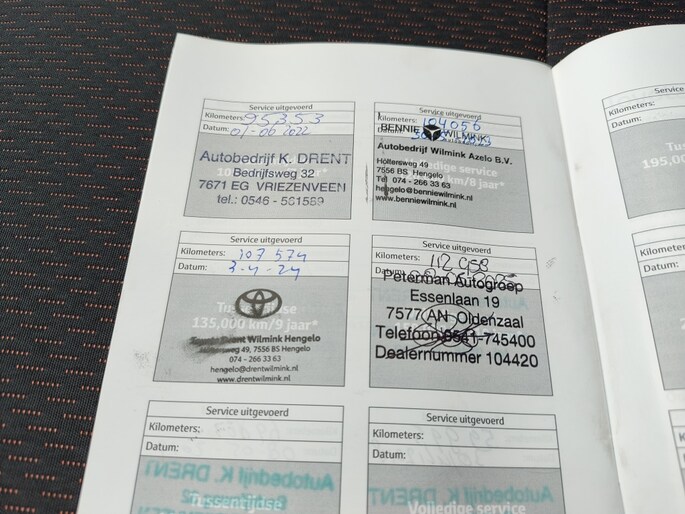 Service uitgevoerd
Kilometers: 95353
Datum: 01-06 2022
Autobedrijf K. DRENT
Bedrijfsweg 32
7671 EG VRIEZENVEEN
tel.: 0546 - 561589
Service uitgevoerd
Kilometers: 104056
Datum:
BENNIE WILMINK
Autobedrijf Wilmink Azelo B.V.
Höltersweg 49
7556 BS Hengelo
Tel 074 - 266 33 63
hengelo@benniewilmink.nl
www.benniewilmink.nl
Volledige service
km/8 jaar*
Service uitgevoerd
Kilometers: 107 574
Datum: 3-4-24
135,000 km/9 jaar*
Drent Wilmink Hengelo
49, 7556 BS Hengelo
074 - 266 33 63
hengelo@drentwilmink.nl
www.drentwilmink.nl
Service uitgevoerd
Kilometers: 112
Datum:
Peterman Autogroep
Essenlaan 19
7577 AN Oldenzaal
Telefoon 0541-745400
Dealernummer 104420
Service uitgevoerd
Kilometers:
Datum:
Tussentijdse
Service uitgevoerd
Kilometers:
Datum:
Volledige service
Kilometers:
Datum:
195,00
Kilometers
Datum:
Kilome
Datum: